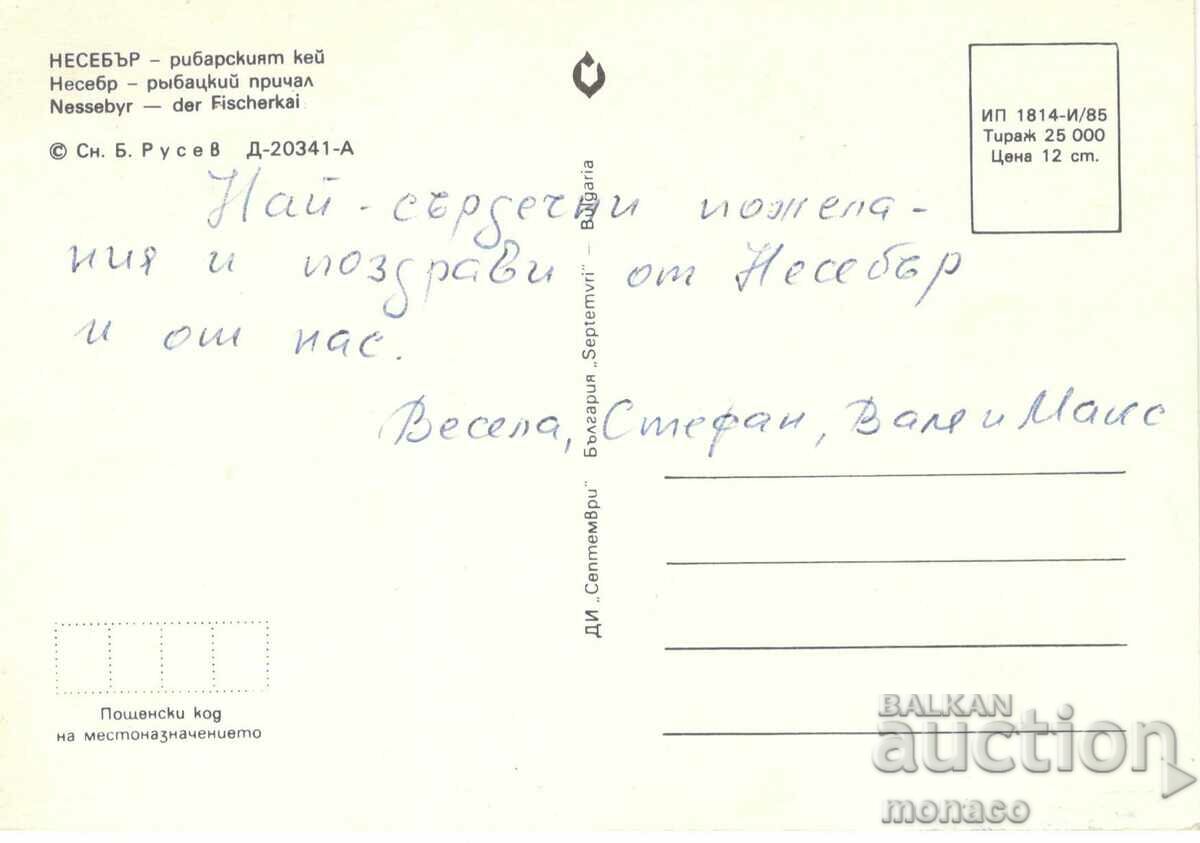 НЕСЕБЪР – рибарският кей
Несебр – рыбацкий причал
Nessebyr — der Fischerkai
© Сн. Б. Русев Д-20341-А
ИП 1814-И/85
Тираж 25 000
Цена 12 ст.
Най-сърдечни пожела-
ния и поздрави от Несебър
и от нас.
Весела, Стефан, Валя и Макс
ДИ „Септември" България „Septemvri" – Bulgaria
Пощенски код
на местоназначението
BALKAN
auction
monaco